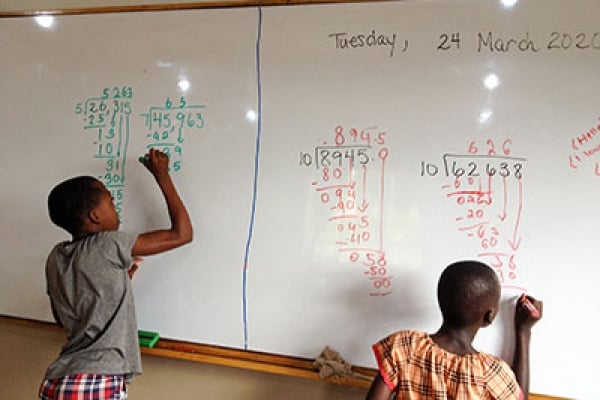 Tuesday, 24 March 2020
5 263
5)26,315
-25
13
-10
31
-30
6 5
7)45,963
-42
894.5
10)8945.0
-80
094
-90
045
-40
0 50
-50
00
626
10)62638
-60
026
-20
-63
60